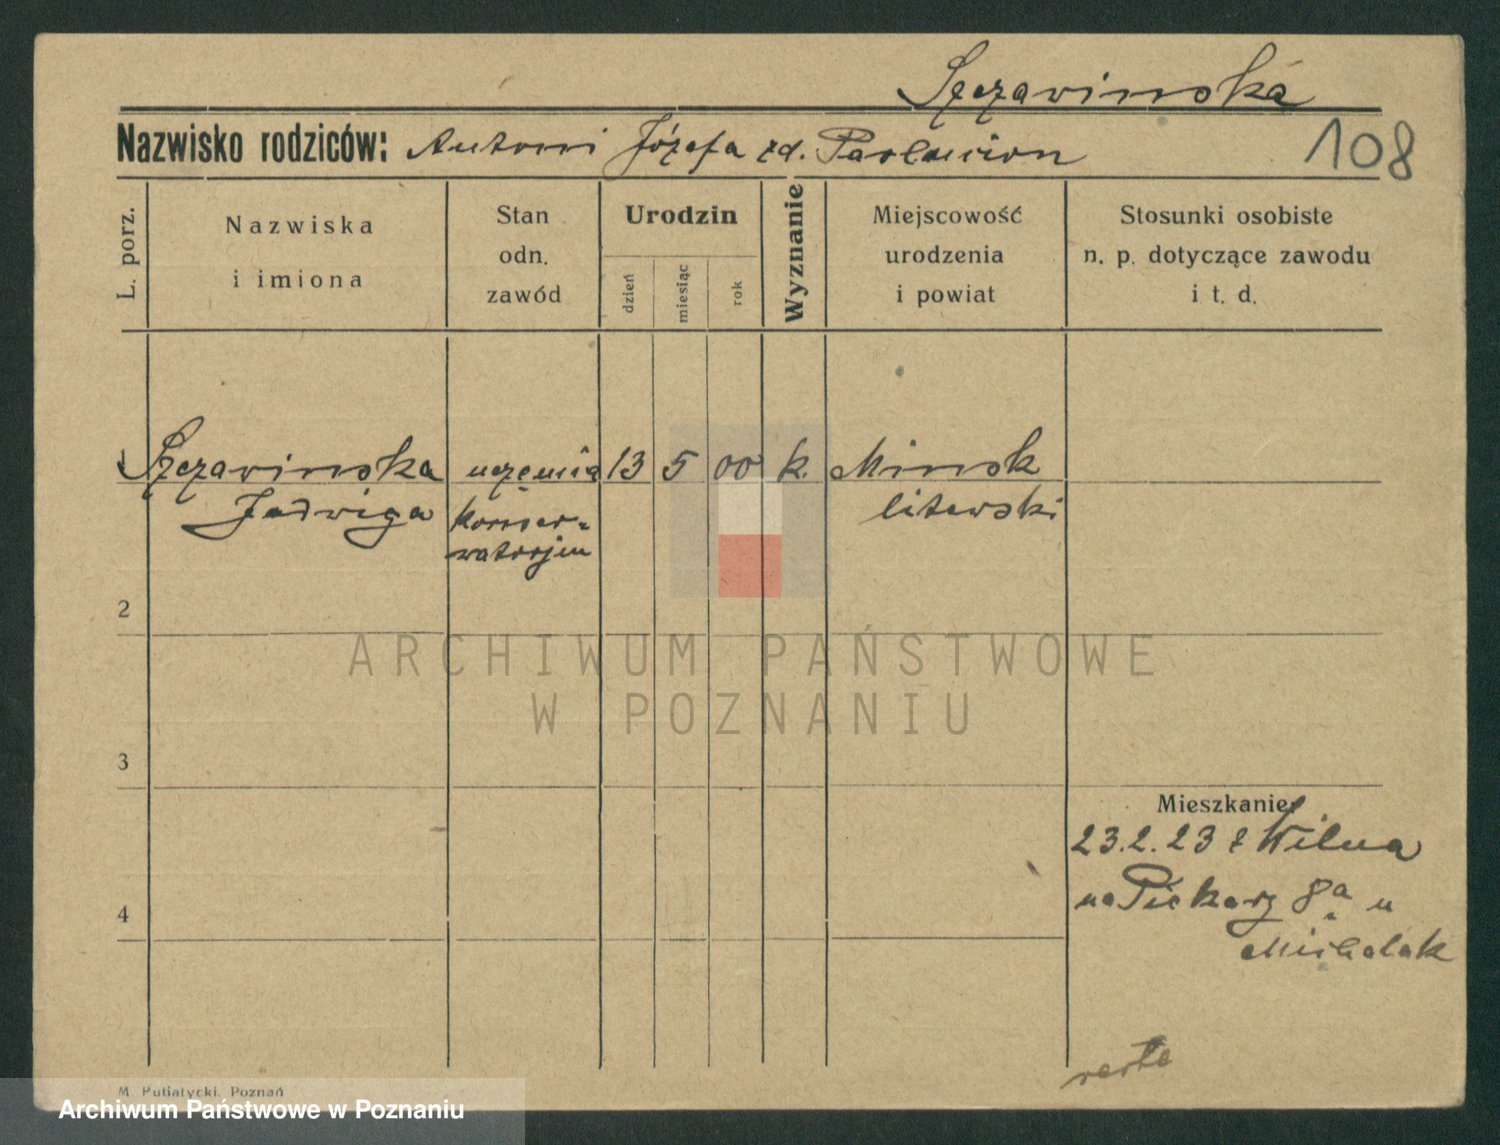 Szczawinska
Nazwisko rodziców: Antoni Józefa zd.
108
L. porz.
Nazwiska
i imiona
Stan
odn.
zawód
Urodzin
dzień
miesiąc
rok
Wyznanie
Miejscowość
urodzenia
i powiat
Stosunki osobiste
n. p. dotyczące zawodu
i t. d.
1 Szczawinska uczenica 13 5 00 k. Minsk
Jadwiga konser- litewski
watorjum
2
3
4
Mieszkanie:
23.2.23 z Wilna
na Piekarz 8a u
Michalak
M. Putiatycki, Poznań
ARCHIWUM PAŃSTWOWE
W POZNANIU
Archiwum Państwowe w Poznaniu